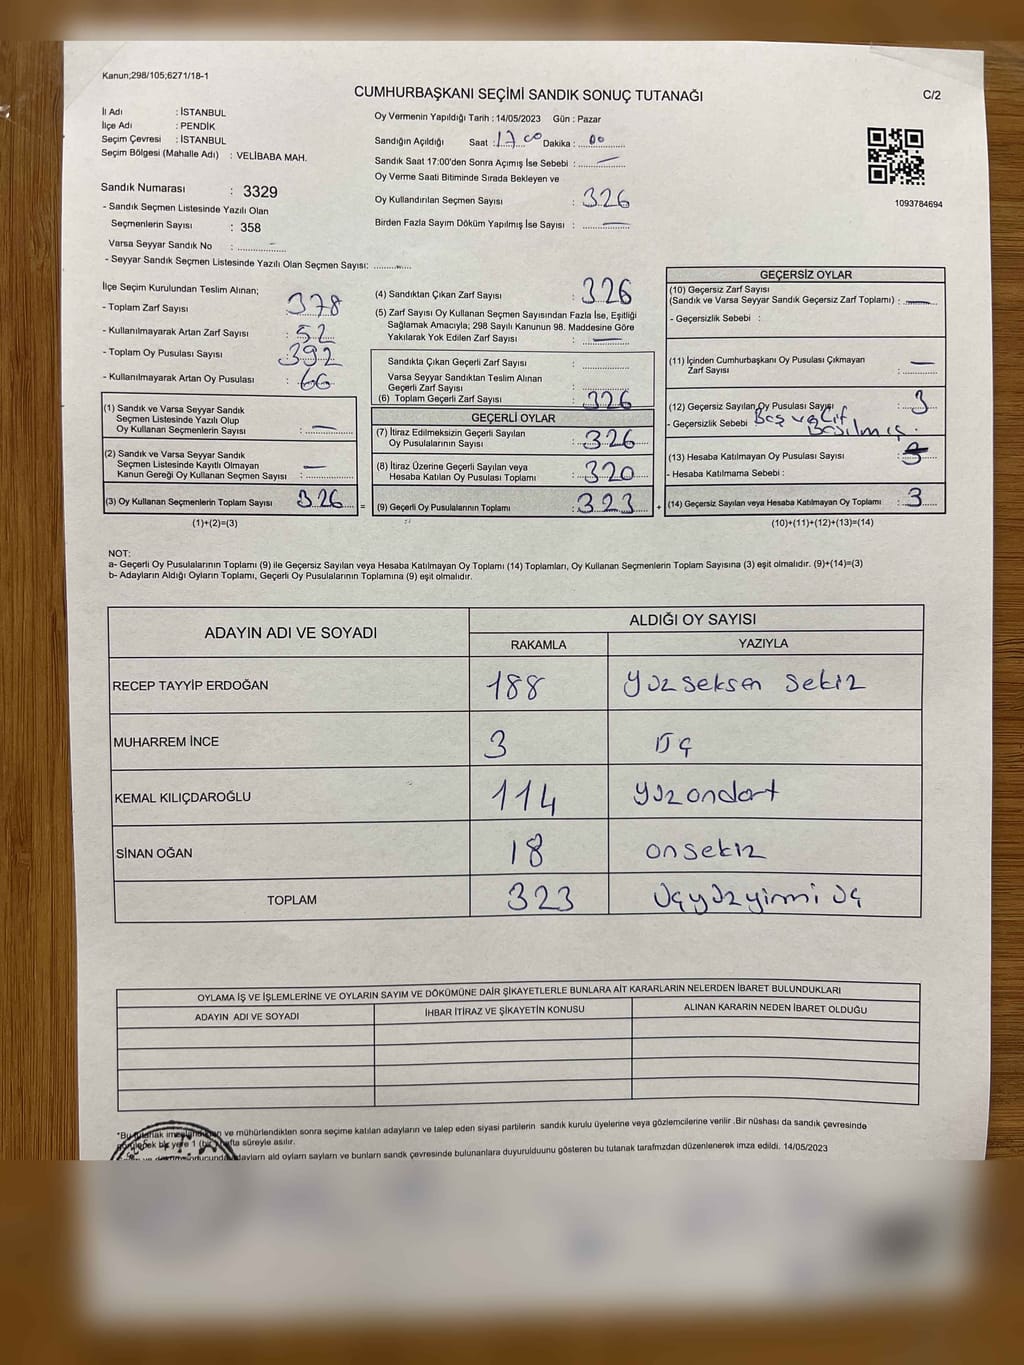 Kanun;298/105;6271/18-1
CUMHURBAŞKANI SEÇİMİ SANDIK SONUÇ TUTANAĞI
C/2
İl Adı : İSTANBUL
İlçe Adı : PENDİK
Seçim Çevresi : İSTANBUL
Seçim Bölgesi (Mahalle Adı) : VELİBABA MAH.
Sandık Numarası : 3329
- Sandık Seçmen Listesinde Yazılı Olan
Seçmenlerin Sayısı : 358
Varsa Seyyar Sandık No :
- Seyyar Sandık Seçmen Listesinde Yazılı Olan Seçmen Sayısı:
Oy Vermenin Yapıldığı Tarih : 14/05/2023 Gün : Pazar
Sandığın Açıldığı Saat : 17 00 Dakika : 00
Sandık Saat 17:00'den Sonra Açımış İse Sebebi : —
Oy Verme Saati Bitiminde Sırada Bekleyen ve
Oy Kullandırılan Seçmen Sayısı : 326
Birden Fazla Sayım Döküm Yapılmış İse Sayısı : —
1093784694
İlçe Seçim Kurulundan Teslim Alınan;
- Toplam Zarf Sayısı : 378
- Kullanılmayarak Artan Zarf Sayısı : 52
- Toplam Oy Pusulası Sayısı : 392
- Kullanılmayarak Artan Oy Pusulası : 66
(1) Sandık ve Varsa Seyyar Sandık
Seçmen Listesinde Yazılı Olup
Oy Kullanan Seçmenlerin Sayısı : —
(2) Sandık ve Varsa Seyyar Sandık
Seçmen Listesinde Kayıtlı Olmayan
Kanun Gereği Oy Kullanan Seçmen Sayısı : —
(3) Oy Kullanan Seçmenlerin Toplam Sayısı 326
(1)+(2)=(3)
=
(4) Sandıktan Çıkan Zarf Sayısı : 326
(5) Zarf Sayısı Oy Kullanan Seçmen Sayısından Fazla İse, Eşitliği
Sağlamak Amacıyla; 298 Sayılı Kanunun 98. Maddesine Göre
Yakılarak Yok Edilen Zarf Sayısı : —
Sandıkta Çıkan Geçerli Zarf Sayısı :
Varsa Seyyar Sandıktan Teslim Alınan
Geçerli Zarf Sayısı :
(6) Toplam Geçerli Zarf Sayısı : 326
GEÇERLİ OYLAR
(7) İtiraz Edilmeksizin Geçerli Sayılan
Oy Pusulalarının Sayısı : 326
(8) İtiraz Üzerine Geçerli Sayılan veya
Hesaba Katılan Oy Pusulası Toplamı : 320
(9) Geçerli Oy Pusulalarının Toplamı : 323
+
GEÇERSİZ OYLAR
(10) Geçersiz Zarf Sayısı
(Sandık ve Varsa Seyyar Sandık Geçersiz Zarf Toplamı) : —
- Geçersizlik Sebebi :
(11) İçinden Cumhurbaşkanı Oy Pusulası Çıkmayan
Zarf Sayısı : —
(12) Geçersiz Sayılan Oy Pusulası Sayısı : 3
- Geçersizlik Sebebi Boş ve Çif
Basılmış.
(13) Hesaba Katılmayan Oy Pusulası Sayısı :
- Hesaba Katılmama Sebebi :
(14) Geçersiz Sayılan veya Hesaba Katılmayan Oy Toplamı : 3
(10)+(11)+(12)+(13)=(14)
NOT:
a- Geçerli Oy Pusulalarının Toplamı (9) ile Geçersiz Sayılan veya Hesaba Katılmayan Oy Toplamı (14) Toplamları, Oy Kullanan Seçmenlerin Toplam Sayısına (3) eşit olmalıdır. (9)+(14)=(3)
b- Adayların Aldığı Oyların Toplamı, Geçerli Oy Pusulalarının Toplamına (9) eşit olmalıdır.
ADAYIN ADI VE SOYADI
ALDIĞI OY SAYISI
RAKAMLA YAZIYLA
RECEP TAYYİP ERDOĞAN 188 yüzseksen sekiz
MUHARREM İNCE 3 üç
KEMAL KILIÇDAROĞLU 114 yüzondört
SİNAN OĞAN 18 onsekiz
TOPLAM 323 üçyüzyirmi üç
OYLAMA İŞ VE İŞLEMLERİNE VE OYLARIN SAYIM VE DÖKÜMÜNE DAİR ŞİKAYETLERLE BUNLARA AİT KARARLARIN NELERDEN İBARET BULUNDUKLARI
ADAYIN ADI VE SOYADI İHBAR İTİRAZ VE ŞİKAYETİN KONUSU ALINAN KARARIN NEDEN İBARET OLDUĞU
*Bu tutanak ve mühürlendikten sonra seçime katılan adayların ve talep eden siyasi partilerin sandık kurulu üyelerine veya gözlemcilerine verilir .Bir nüshası da sandık çevresinde
bir yere 1 (bir) hafta süreyle asılır.
adayların ald oyların sayların ve bunların sandk çevresinde bulunanlara duyurulduunu gösteren bu tutanak tarafmzdan düzenlenerek imza edildi. 14/05/2023